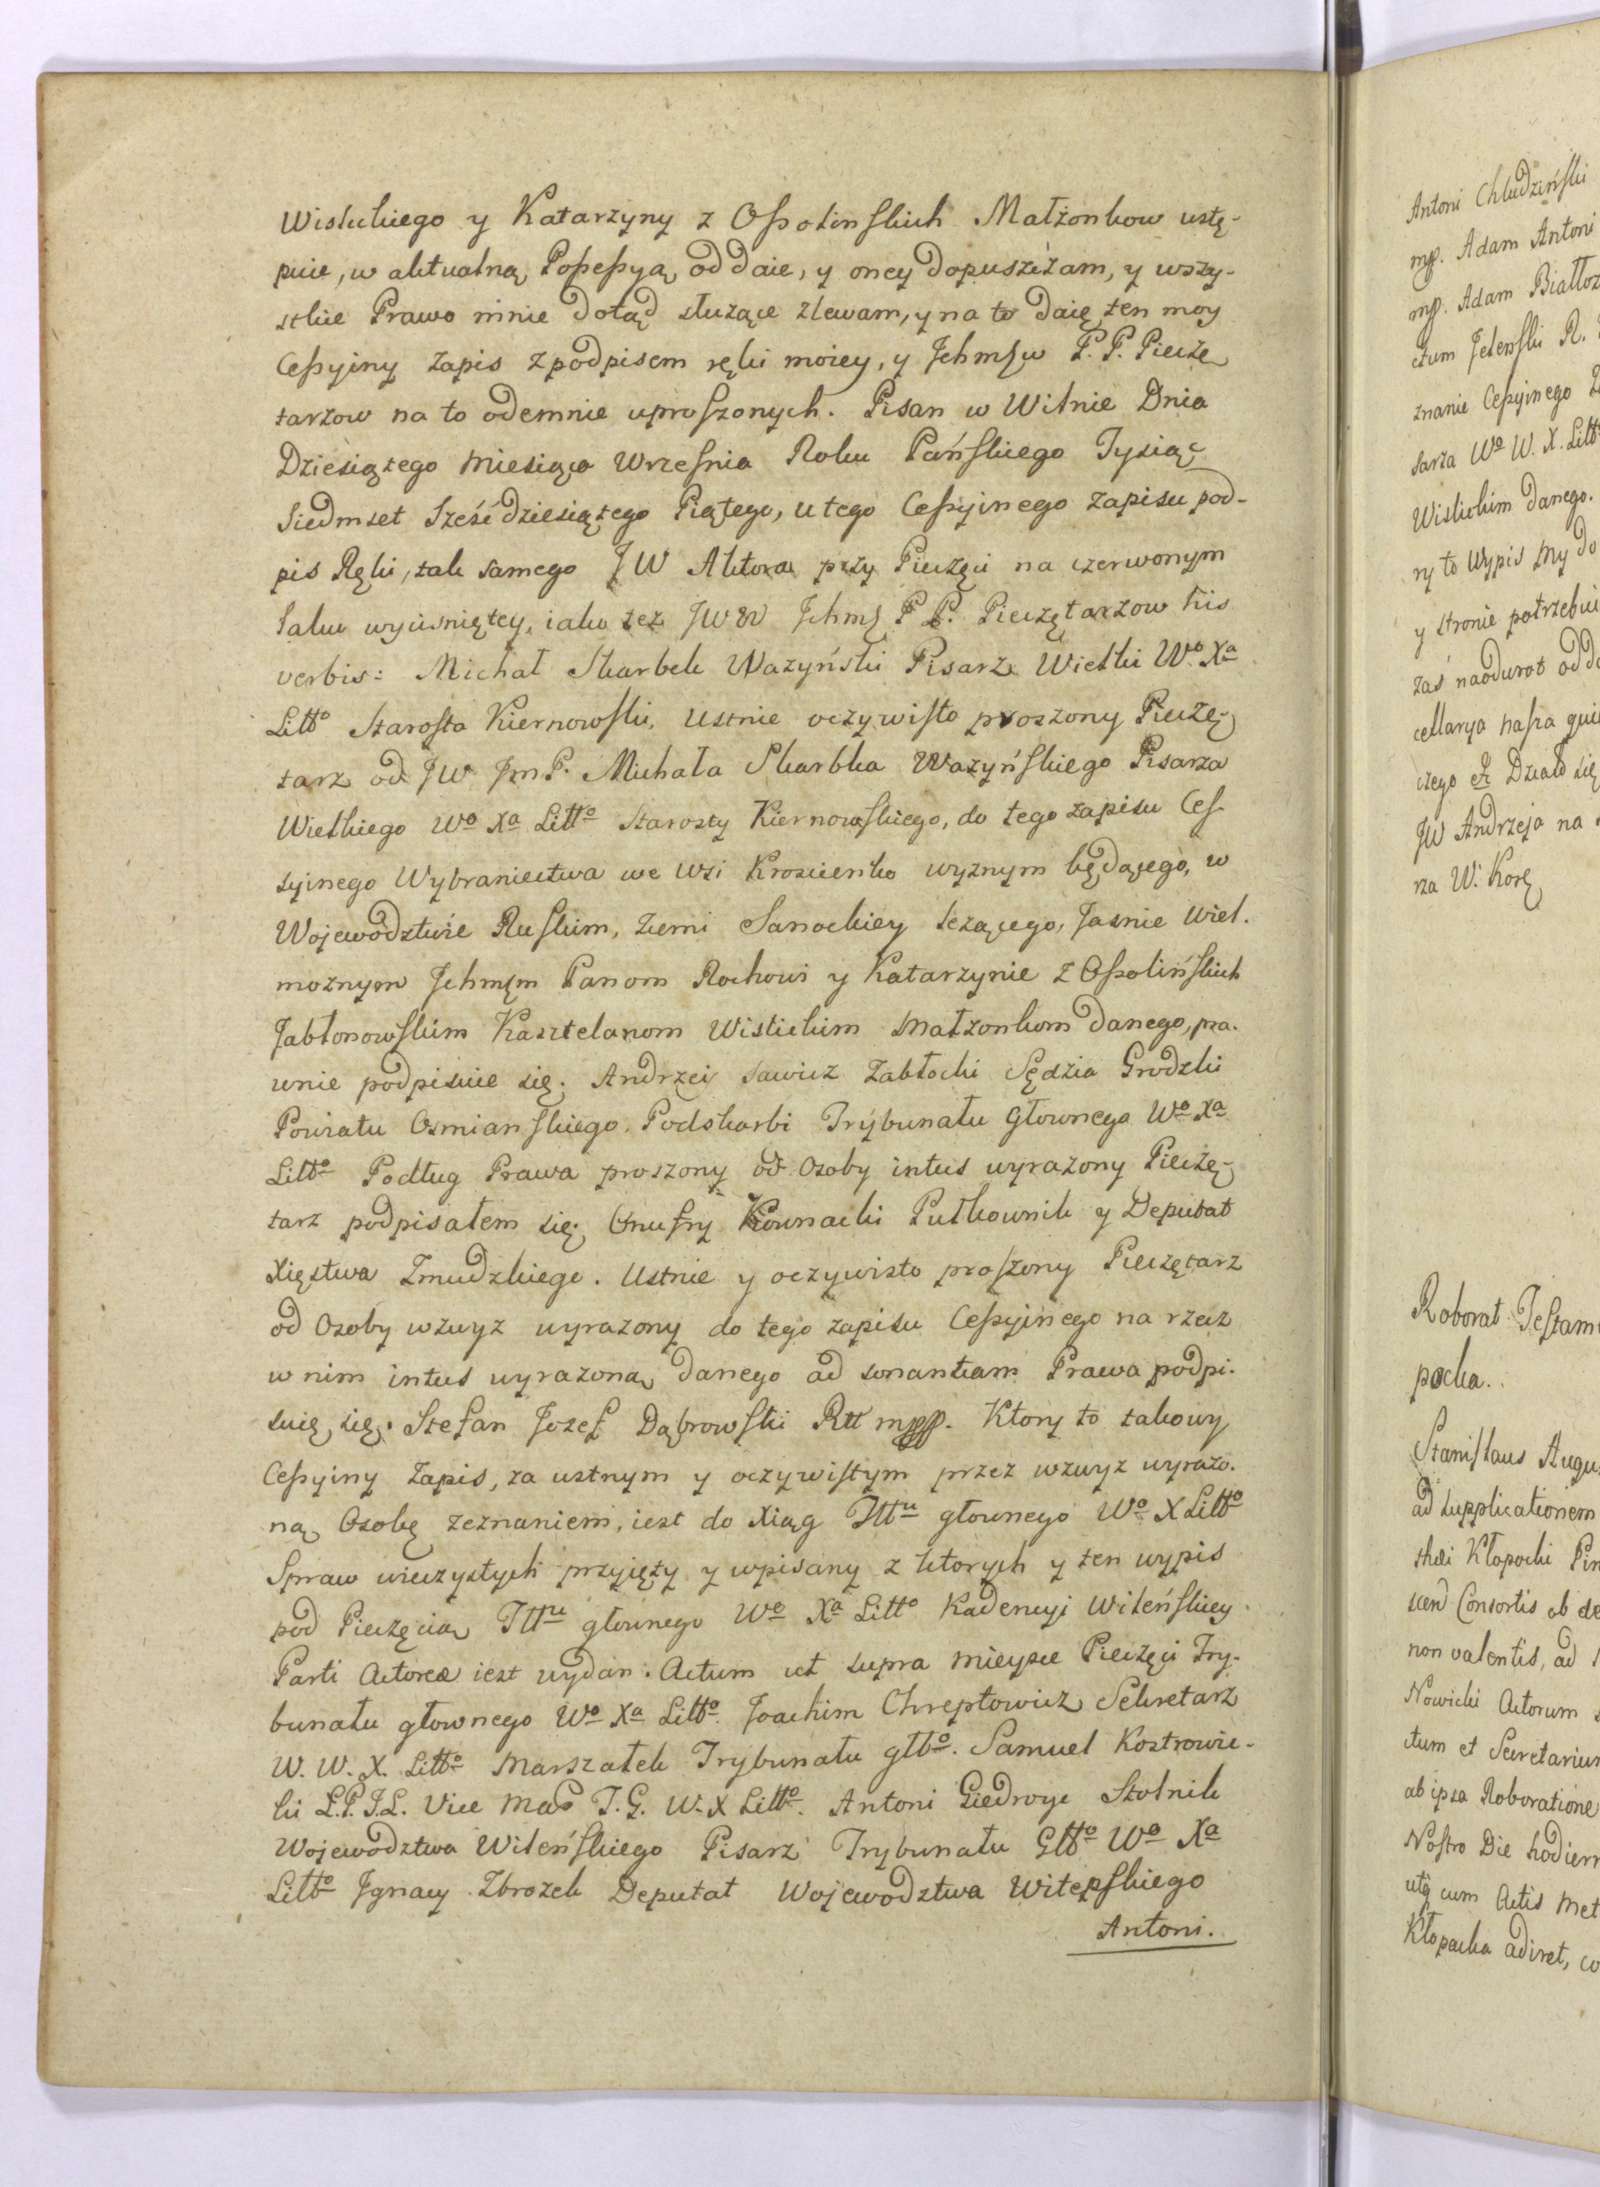 Wislickiego y Katarzyny z Ossolinskich Małżonkow ustę-
puie, w aktualną Possessyą oddaie, y oney dopuszczam, y wszy-
stkie Prawo mnie dotąd służące zlewam, y na to daię ten moy
Cessyiny Zapis z podpisem ręki moiey, y Jchmsw P. P. Pieczę
tarzow na to odemnie uproszonych. Pisan w Wilnie Dnia
Dziesiątego Miesiąca Wrzesnia Roku Pańskiego Tysiąc
Siedmset Sześćdziesiątego Piątego, u tego Cessyinego Zapisu pod-
pis Ręki, tak samego JW Aktora przy Pieczęci na czerwonym
Laku wyciśniętey, iako też JWW Jchms P P. Pieczętarzow his
verbis: Michał Skarbek Ważyński Pisarz Wielki Wo Xa
Litto Starosta Kiernowski. Ustnie oczywisto proszony Pieczę-
tarz od JW JmP. Michała Skarbka Ważyńskiego Pisarza
Wielkiego Wo Xa Litto Starosty Kiernowskiego, do tego zapisu Ces
syinego Wybraniectwa we wsi Krościenko wyżnym będącego, w
Wojewodztwie Ruskim, Ziemi Sanockiey leżącego, Jasnie Wiel.
możnym Jchmsm Panom Rochowi y Katarzynie z Ossolińskich
Jabłonowskim Kasztelanom Wislickim Małżonkom danego, pra.
wnie podpisuie się. Andrzei Sawicz Zabłocki Sędzia Grodzki
Powiatu Osmianskiego. Podskarbi Trybunału Głownego Wo Xa
Litto Podług Prawa proszony od Osoby intus wyrażony Pieczę-
tarz podpisałem się. Onufry Kownacki Pułkownik y Deputat
Xięstwa Zmudzkiego. Ustnie y oczywisto proszony Pieczętarz
od Osoby wzwyz wyrażony do tego zapisu Cessyinego na rzecz
w nim intus wyrażoną danego ad sonantiam Prawa podpi.
suię się. Stefan Jozef Dąbrowski Rtt mppp. Ktory to takowy
Cessyiny Zapis, za ustnym y oczywistym przez wzwyz wyrażo.
ną Osobę zeznaniem, iest do Xiąg Tttu głownego Wo X Litto
Spraw wieczystych przyięty y wpisany z ktorych y ten wypis
pod Pieczęcią Tttu głownego Wo Xa Litto Kadencyi Wileńskiey
Parti Actorea iest wydan. Actum ut supra mieysce Pieczęci Try-
bunału głownego Wo Xa Litto. Joachim Chreptowicz Sekretarz
W. W. X. Litto Marszałek Trybunału głto. Samuel Kostrowic-
ki L.P.J.L. Vice Mar T. G. W. X Litto. Antoni Giedroyc Stolnik
Wojewodztwa Wileńskiego Pisarz Trybunału Głto Wo Xa
Litto Jgnacy Zbrożek Deputat Wojewodztwa Witepskiego
Antoni.
Antoni Chludziński
mp. Adam Antoni
mp. Adam Białłoz
ctum Jeleński R.
znanie Cessyinego Z
sarza Wo W. X. Litto
Wislickim danego.
ry to Wypis My do
y stronie potrzebui
zaś naodwrot odd
cellarya nasza
czego etc Działo się
JW Andrzeja na
rza W. Kor
Roborat Testam
pocka.
Stanislaus Augu
ad supplicationem
Kłopocki Pin
Consortis ob de
non valentis, ad
Nowicki Actorum
ctum et Secretarium
ab ipsa Roboratione
Nostro Die hodier
utq cum Actis Met
Kłopocka adiret, co